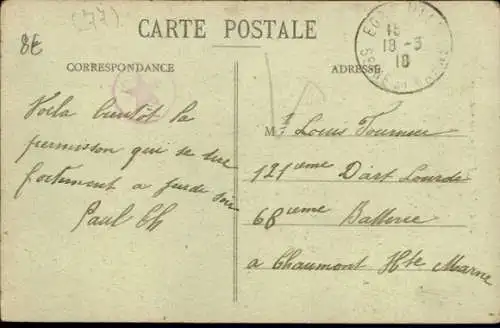 (77)
8E
CARTE POSTALE
CORRESPONDANCE
ADRESSE
15
18 - 3
18
SEINE ET MARNE
Voila bientôt la
permission qui se tire
fortement a
Paul Ch
Mr Louis Tourneur
121eme D'art Lourde
68ieme Batterie
a Chaumont Hte Marne